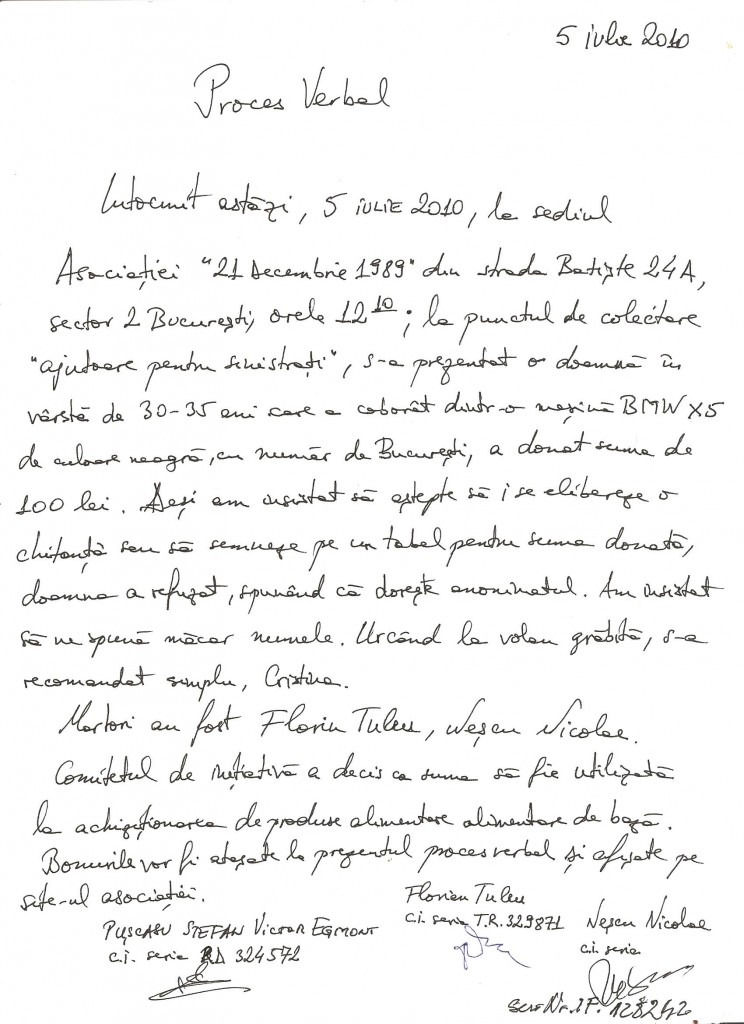 5 iulie 2010
Proces Verbal
Intocmit astăzi, 5 IULIE 2010, la sediul
Asociației "21 Decembrie 1989" din strada Batiște 24A,
sector 2 București, orele 12 10; la punctul de colectare
"ajutoare pentru sinistrați", s-a prezentat o doamnă în
vârstă de 30-35 ani care a coborât dintr-o mașină BMW X5
de culoare neagră, cu număr de București, a donat suma de
100 lei. Deși am insistat să aștepte să i se elibereze o
chitanță sau să semneze pe un tabel pentru suma donată,
doamna a refuzat, spunând că dorește anonimatul. Am insistat
să ne spună măcar numele. Urcând la volan grăbită, s-a
recomandat simplu, Cristina.
Martori au fost Florin Tuleu, Neșcu Nicolae.
Comitetul de inițiativă a decis ca suma să fie utilizată
la achiziționarea de produse alimentare alimentare de bază.
Bonurile vor fi atașate la prezentul proces verbal și afișate pe
site-ul asociației.
Florian Tuleu
c.i. seria T.R. 329871
Neșcu Nicolae
c.i. seria
PUȘCAȘU ȘTEFAN VICTOR EGMONT
c.i. seria RD 324572